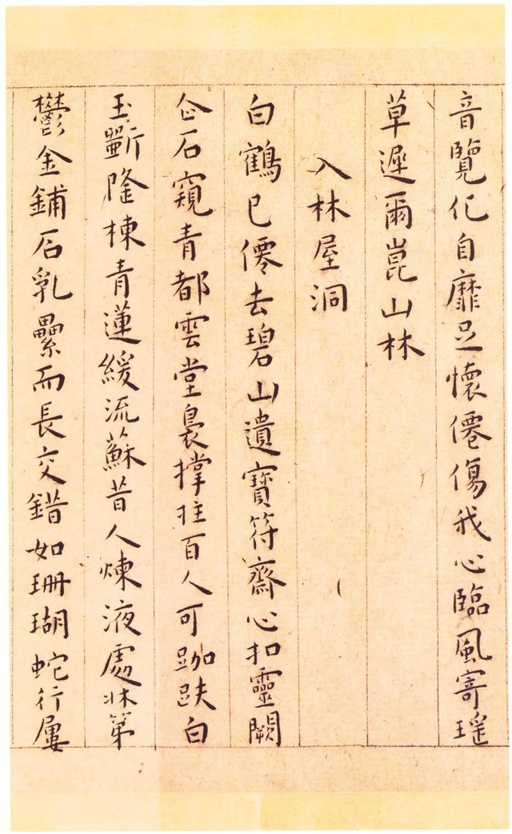 音覽化自靡足懷僊傷我心臨風寄瑤
草遲爾崑山林
入林屋洞
白鶴已僊去碧山遺寶符齋心扣靈闕
企石窺青都雲堂裊撐拄百人可跏趺白
玉斲隆棟青蓮緩流蘇昔人煉液處牀第
鬱金鋪石乳纍而長交錯如珊瑚蛇行屢